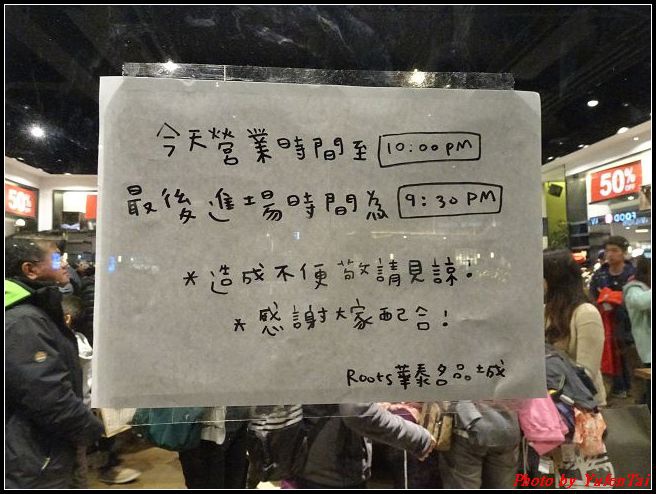 今天營業時間至 10:00 PM
最後進場時間為 9:30 PM
*造成不便敬請見諒!
*感謝大家配合!
Roots華泰名品城
50%
50%
FOOD
Photo by YufenTai